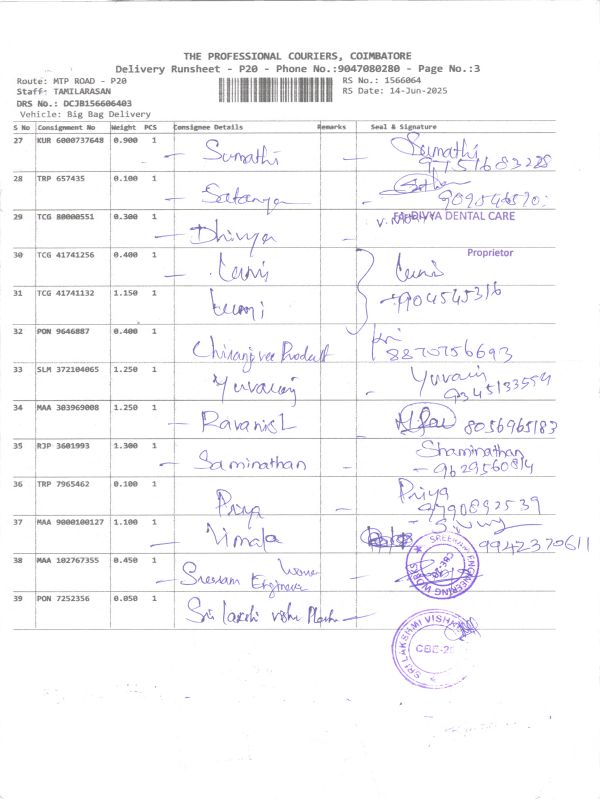 THE PROFESSIONAL COURIERS, COIMBATORE
Delivery Runsheet - P20 - Phone No.:9047080280 - Page No.:3
Route: MTP ROAD - P20 RS No.: 1566064
Staff: TAMILARASAN RS Date: 14-Jun-2025
DRS No.: DCJB156606403
Vehicle: Big Bag Delivery
S No Consignment No Weight PCS Consignee Details Remarks Seal & Signature
27 KUR 6000737648 0.900 1 - Sumathi - Sumathi
9751683228
28 TRP 657435 0.100 1 - Satanya -
29 TCG 80000551 0.300 1 - Dhivya DIVYA DENTAL CARE
Proprietor
30 TCG 41741256 0.400 1
31 TCG 41741132 1.150 1
9904545316
32 PON 9646887 0.400 1 Chiranjeevee Product
8870756693
33 SLM 372104065 1.250 1 Yuvaraj - Yuvaraj
9345133554
34 MAA 303969008 1.250 1 - Ravanis L - 8056965183
35 RJP 3601993 1.300 1 - Saminathan - Shaminathan
- 9629560814
36 TRP 7965462 0.100 1 Priya - Priya
9790892539
37 MAA 9000100127 1.100 1 - Vimala
9942370611
38 MAA 102767355 0.450 1 - Sreeram Engineer
SREERAM ENGINEERING WORKS
39 PON 7252356 0.050 1 Sri lakshi vishu -
SRI LAKSHMI VISHA
CBE-2